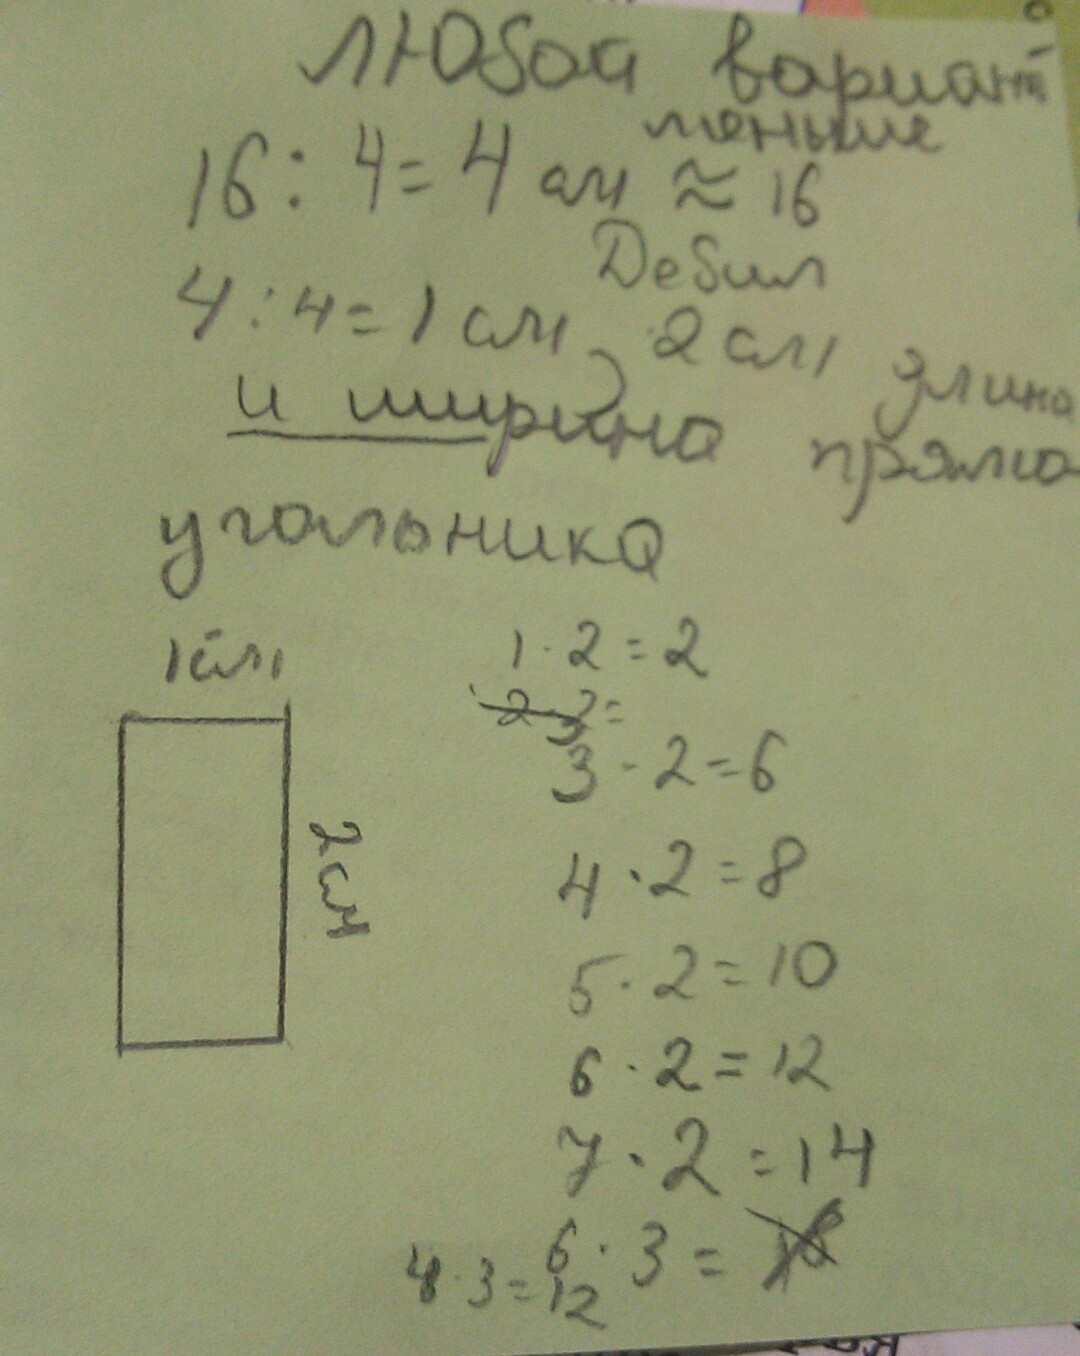 любой вариант
меньше
16 : 4 = 4 см ≈ 16
Дебил
4 : 4 = 1 см, 2 см длина
и ширина прямо
угольника
1 см
1 · 2 = 2
2 · 2 =
3 · 2 = 6
2 см
4 · 2 = 8
5 · 2 = 10
6 · 2 = 12
7 · 2 = 14
6 · 3 = 18
4 · 3 = 12